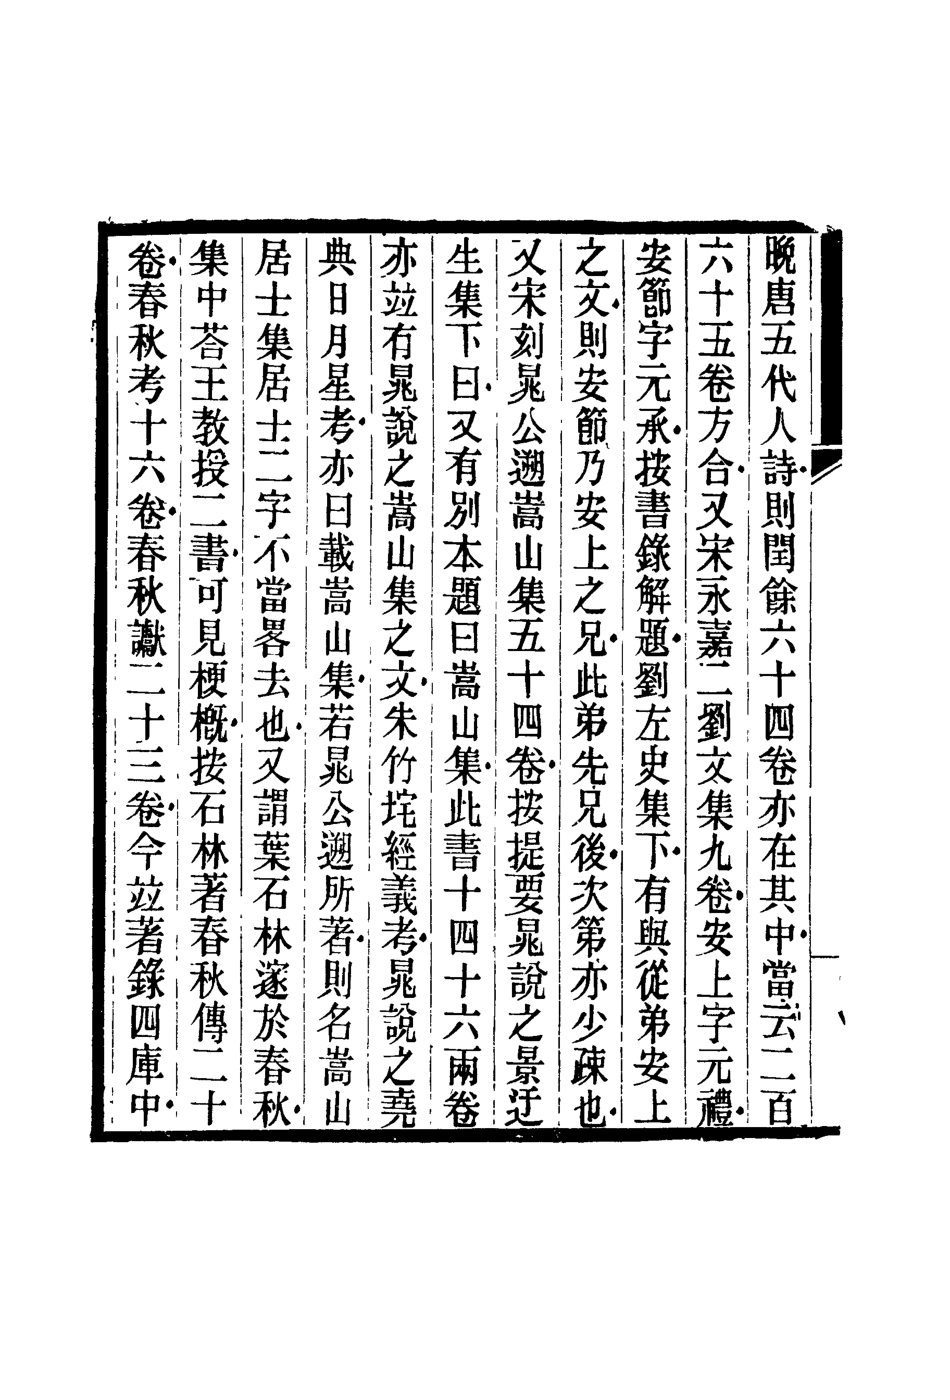 晚唐五代人詩則閏餘六十四卷亦在其中當云二百
六十五卷方合又宋永嘉二劉文集九卷安上字元禮
安節字元承按書錄解題劉左史集下有與從弟安上
之文則安節乃安上之兄此弟先兄後次第亦少疎也
又宋刻晁公遡嵩山集五十四卷按提要晁說之景迂
生集下曰又有別本題曰嵩山集此書十四十六兩卷
亦竝有晁說之嵩山集之文朱竹垞經義考晁說之堯
典日月星考亦曰載嵩山集若晁公遡所著則名嵩山
居士集居士二字不當畧去也又謂葉石林邃於春秋
集中荅王教授二書可見梗槪按石林著春秋傳二十
卷春秋考十六卷春秋讞二十三卷今竝著錄四庫中